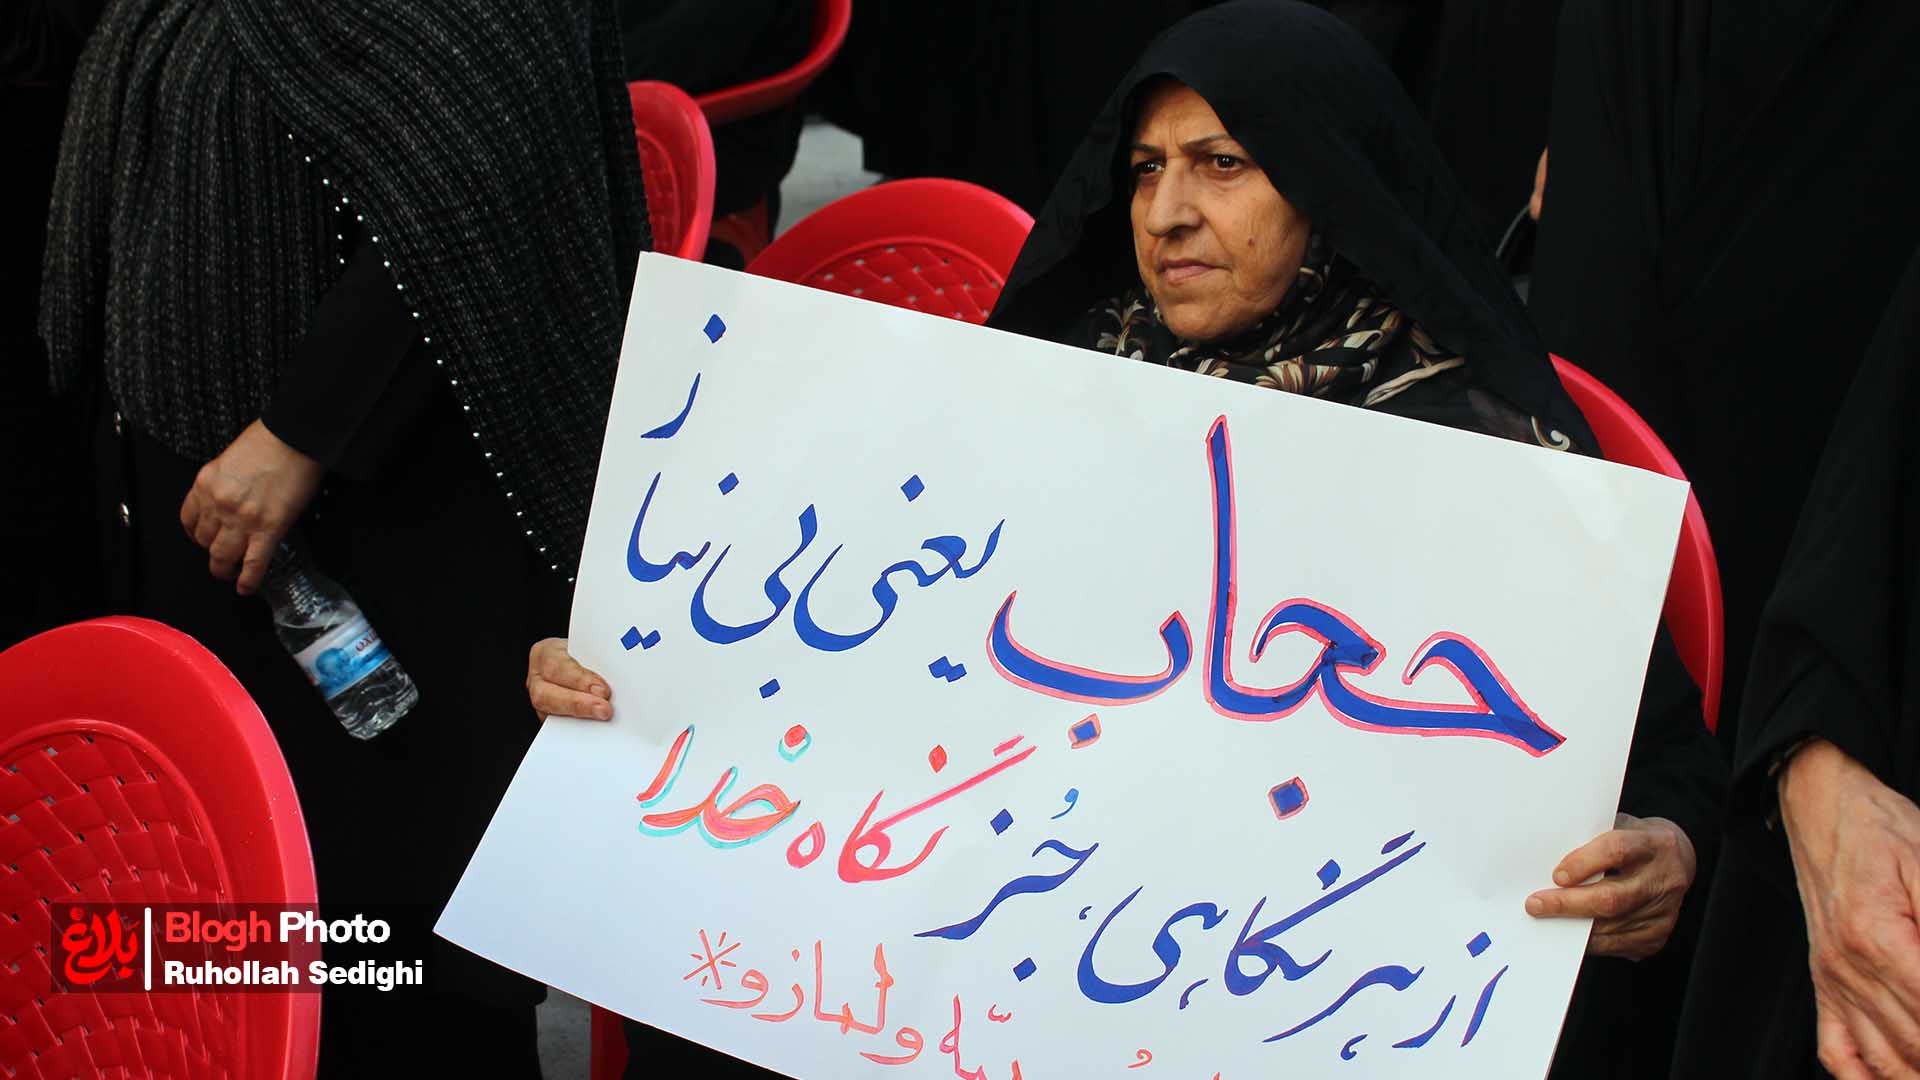 حجاب یعنی بی نیاز
از هر نگاهی، جُز نگاه خدا
ولمازو
بلاغ
Blogh Photo
Ruhollah Sedighi